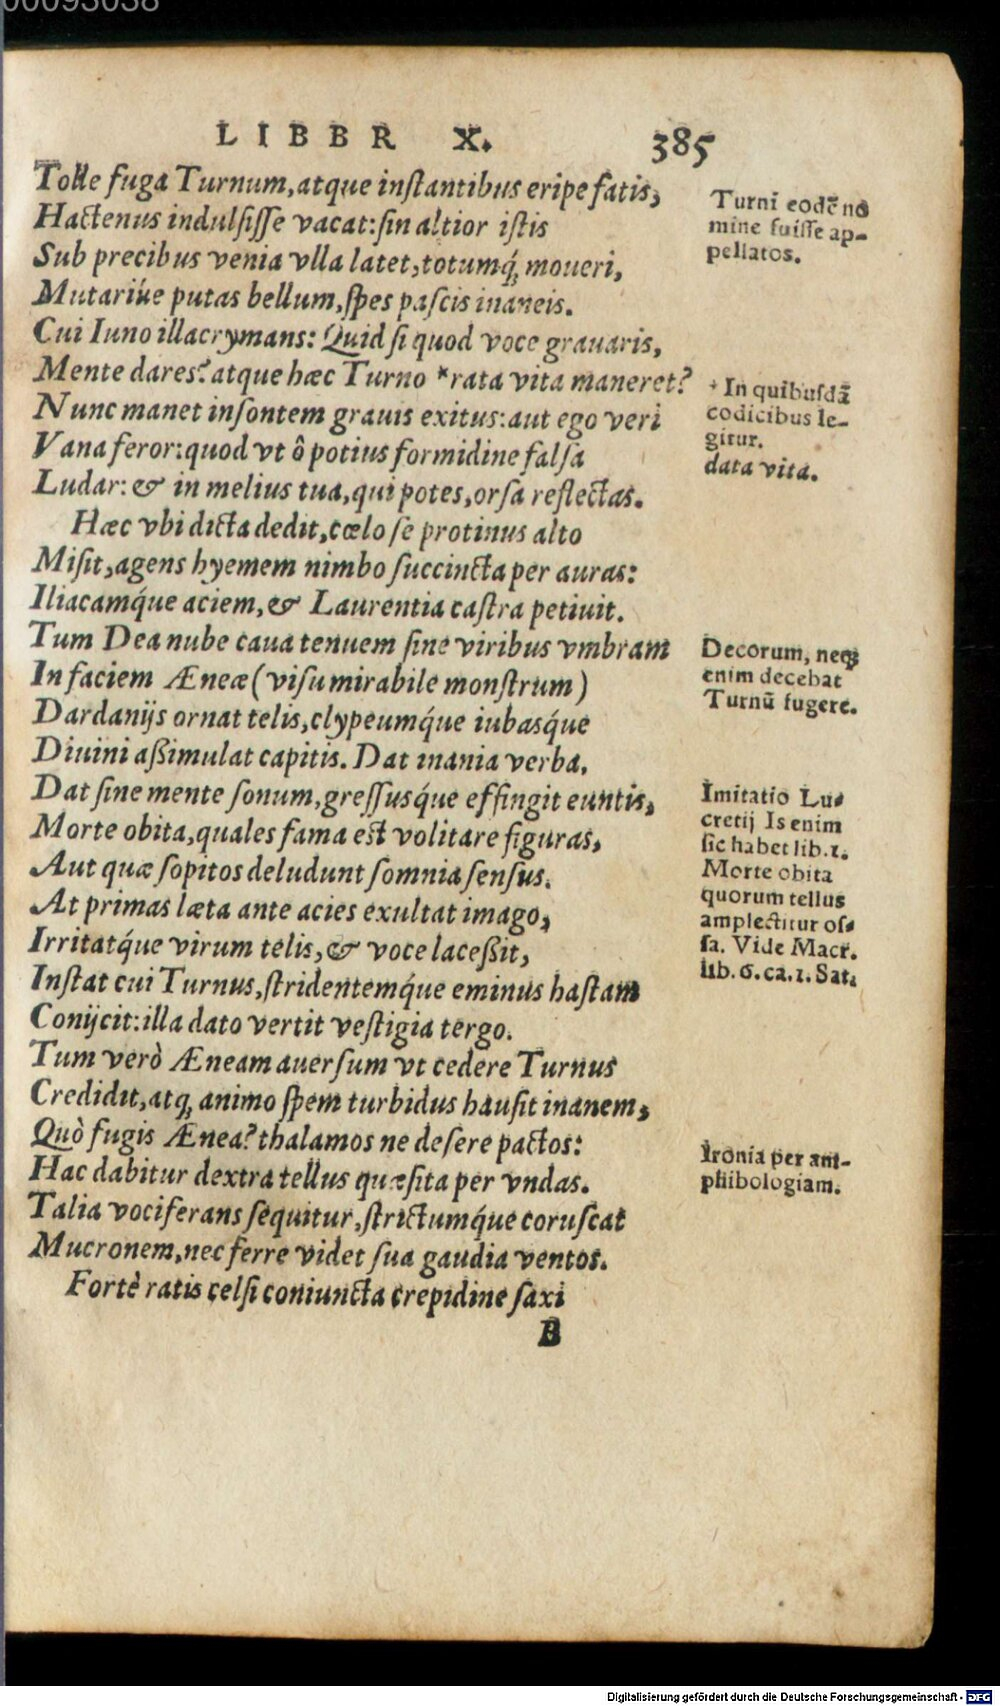 00093038
LIBBR X. 385
Tolle fuga Turnum, atque inſtantibus eripe fatis,
Hactenus indulſiſſe vacat: ſin altior iſtis
Sub precibus venia vlla latet, totumq́; moueri,
Mutariúe putas bellum, ſpes paſcis inaneis.
Cui Iuno illacrymans: Quid ſi quod voce grauaris,
Mente dares? atque hæc Turno *rata vita maneret?
Nunc manet inſontem grauis exitus: aut ego veri
Vana feror: quod vt ô potius formidine falſa
Ludar: & in melius tua, qui potes, orſa reflectas.
Hæc vbi dicta dedit, cœlo ſe protinus alto
Miſit, agens hyemem nimbo ſuccincta per auras:
Iliacamq́ue aciem, & Laurentia caſtra petiuit.
Tum Dea nube caua tenuem ſine viribus vmbram
In faciem Æneæ (viſu mirabile monſtrum)
Dardanijs ornat telis, clypeumq́ue iubasq́ue
Diuini aßimulat capitis. Dat inania verba,
Dat ſine mente ſonum, greſſusq́ue effingit euntis,
Morte obita, quales fama eſt volitare figuras,
Aut quæ ſopitos deludunt ſomnia ſenſus.
At primas læta ante acies exultat imago,
Irritatq́ue virum telis, & voce laceßit,
Inſtat cui Turnus, ſtridentemq́ue eminus haſtam
Conijcit: illa dato vertit veſtigia tergo.
Tum verò Æneam auerſum vt cedere Turnus
Credidit, atq; animo ſpem turbidus hauſit inanem,
Quò fugis Ænea? thalamos ne deſere pactos:
Hac dabitur dextra tellus quæſita per vndas.
Talia vociferans ſequitur, ſtrictumq́ue coruſcat
Mucronem, nec ferre videt ſua gaudia ventos.
Fortè ratis celſi coniuncta crepidine ſaxi
B
Turni eodē nō
mine fuiſſe ap-
pellatos.
* In quibuſdā
codicibus le-
gitur.
data vita.
Decorum, neq;
enim decebat
Turnū fugere.
Imitatio Lu-
cretij Is enim
ſic habet lib.1.
Morte obita
quorum tellus
amplectitur oſ-
ſa. Vide Macr.
lib. 6. ca. 1. Sat.
Ironia per am-
phibologiam.
Digitalisierung gefördert durch die Deutsche Forschungsgemeinschaft - DFG